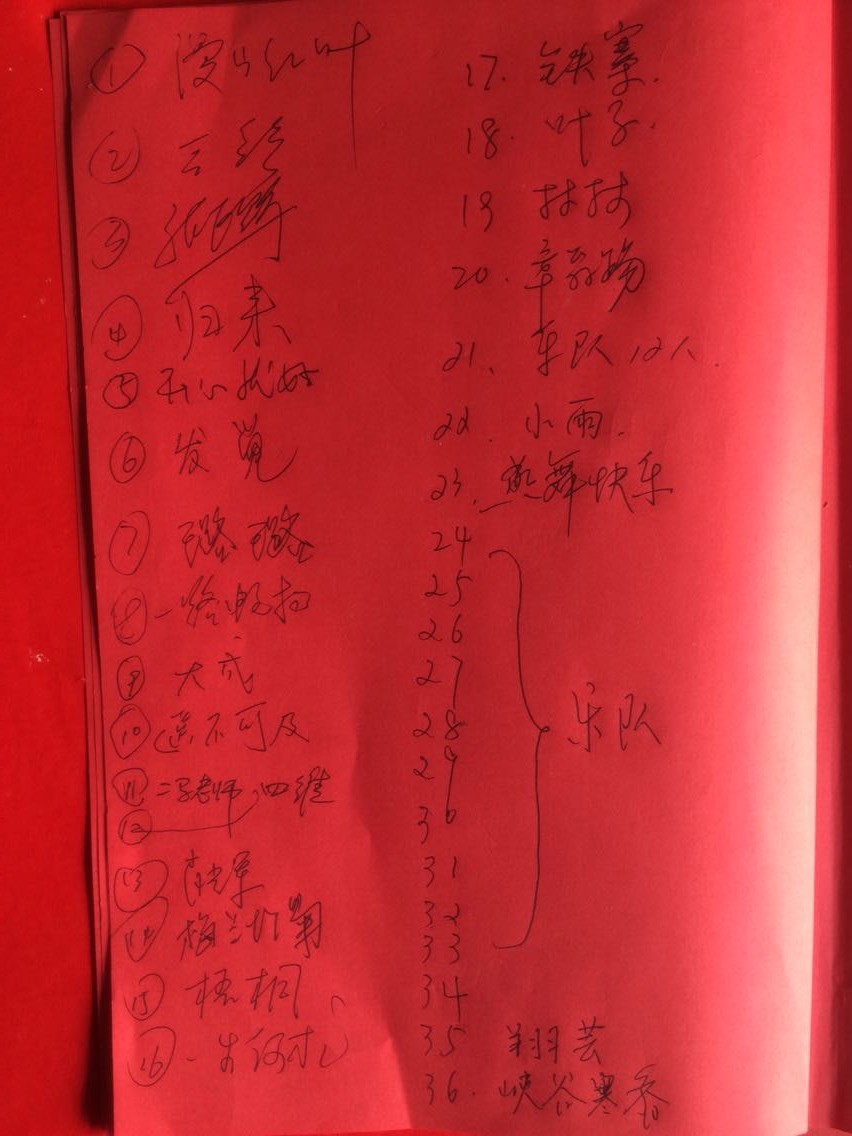 ① 漫山红叶
② 云
③
④ 归来
⑤ 开心就好
⑥ 发觉
⑦ 璐璐
⑧ 一路畅
⑨ 大
⑩ 遥不可及
⑪ 老师 四维
⑫
⑬
⑭ 梅兰竹菊
⑮ 梧桐
⑯ 一生何求
17. 铁寨.
18. 叶子.
19 林林
20. 章
21、乐队12人.
22. 小雨.
23. 燕舞快乐
24
25
26
27
28
29
30
31
32
33
乐队
34
35 翔芸
36. 峡谷寒香